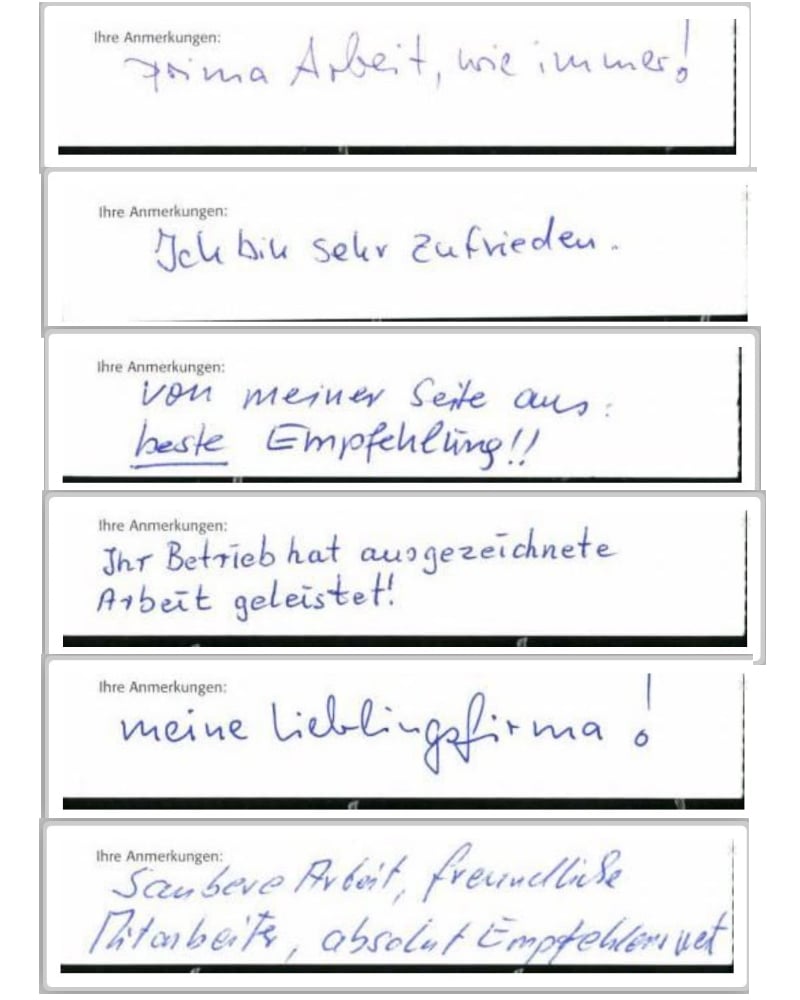 Ihre Anmerkungen:
prima Arbeit, wie immer!
Ihre Anmerkungen:
Ich bin sehr zufrieden.
Ihre Anmerkungen:
von meiner Seite aus:
beste Empfehlung!!
Ihre Anmerkungen:
Ihr Betrieb hat ausgezeichnete
Arbeit geleistet!
Ihre Anmerkungen:
meine Lieblingsfirma!
Ihre Anmerkungen:
Saubere Arbeit, freundliche
Mitarbeiter, absolut Empfehlenswert